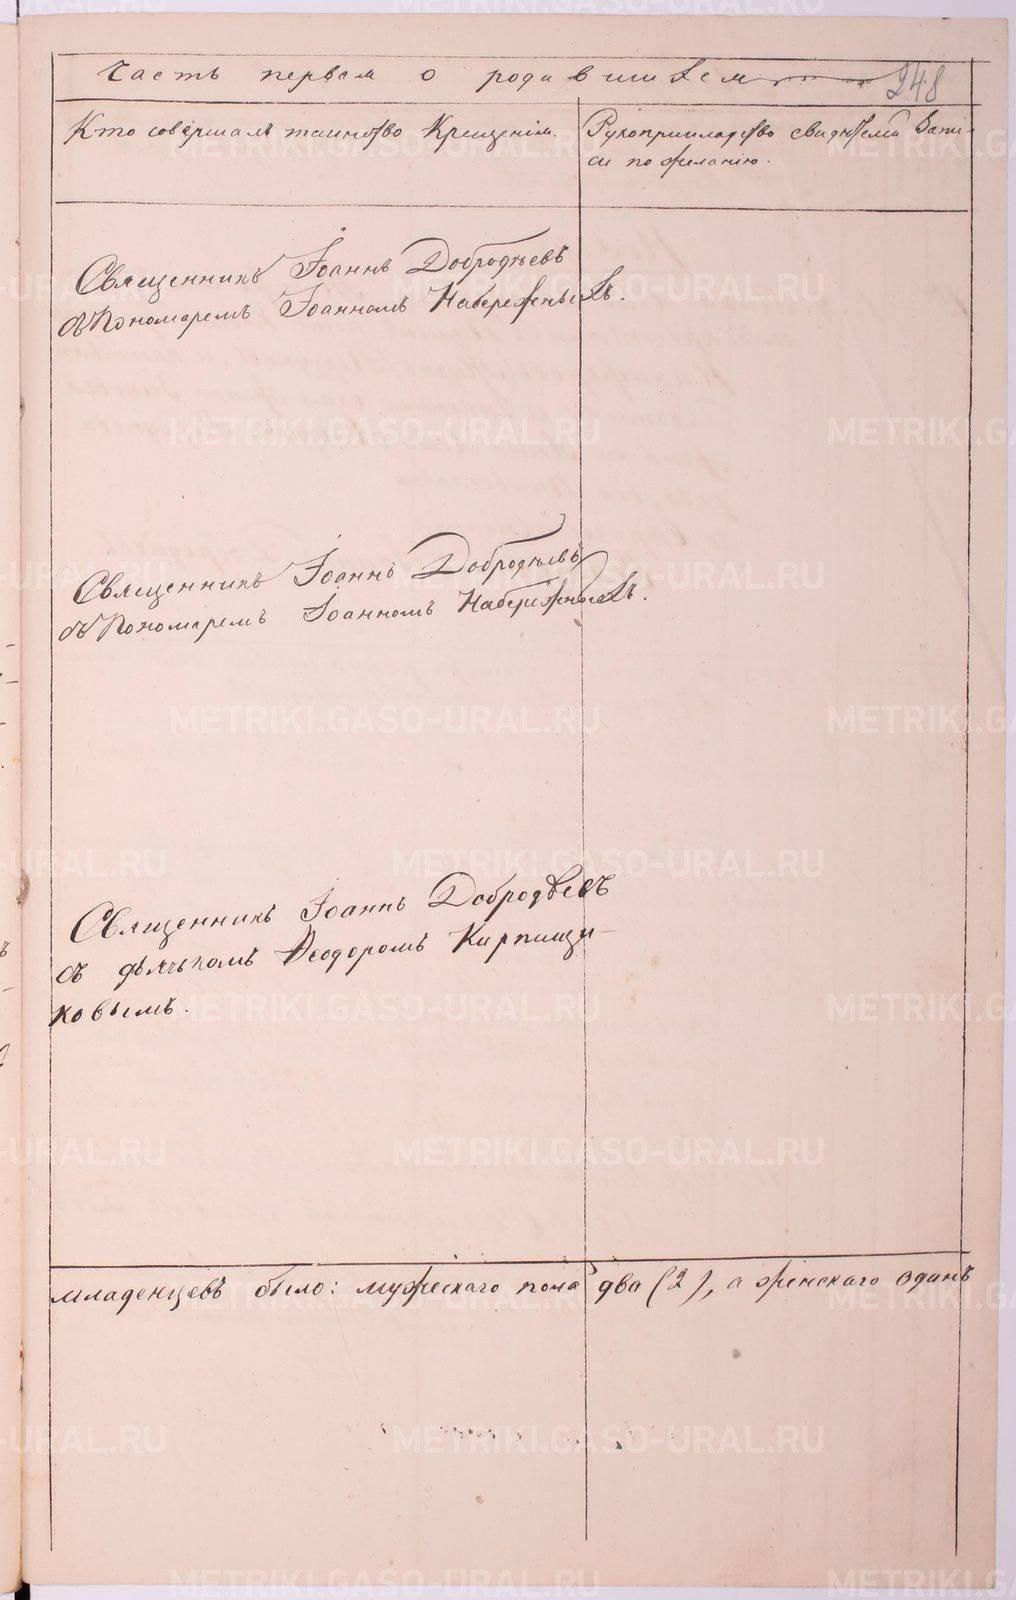 Часть первая о родившихся
248
Кто совершалъ таинство Крещенія.
Рукоприкладство свидѣтелей запи-
си по желанію.
Священникъ Іоаннъ Добродѣевъ
съ Пономаремъ Іоанномъ Набережныхъ.
Священникъ Іоаннъ Добродѣевъ
съ Пономаремъ Іоанномъ Набережныхъ.
Священникъ Іоаннъ Добродѣевъ
съ дьячкомъ Ѳеодоромъ Кирпищи-
ковымъ.
младенцевъ было: мужескаго пола два (2), а женскаго одинъ
METRIKI.GASO-URAL.RU